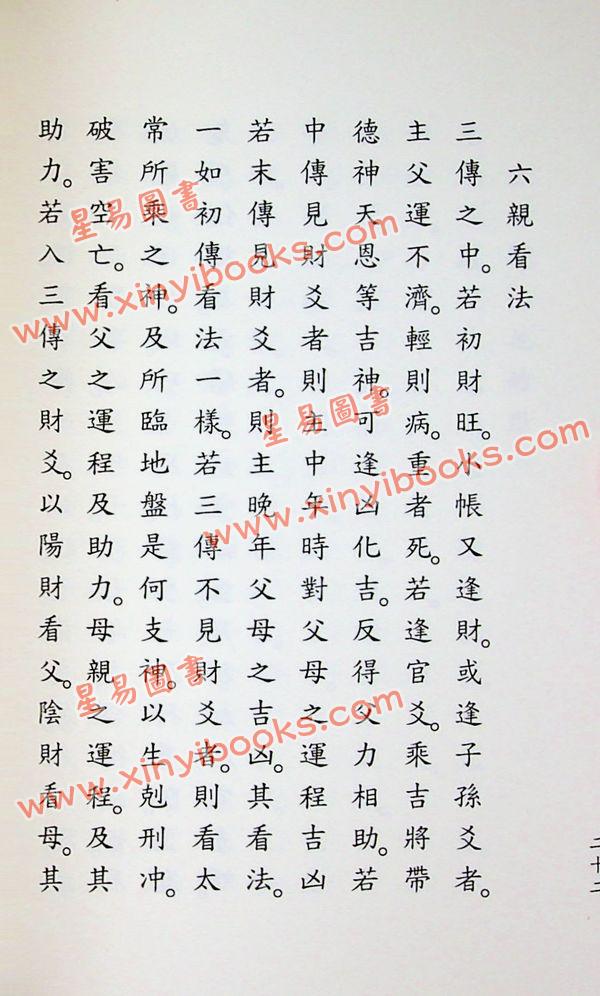 六親看法
三傳之中。若初財旺。小帳又逢財。或逢子孫爻者。
主父運不濟。輕則病。重者死。若逢官爻。乘吉將帶
德神天恩等吉神。可逢凶化吉。反得父力相助。若
中傳見財爻者則主中年時對父母之運程吉凶
若末傳見財爻者。則主晚年父母之吉凶。其看法。
一如初傳看法一樣。若三傳不見財爻者。則看太
常所乘之神。及所臨地盤是何支神。以生剋刑冲。
破害空亡。看父之運程及助力。母親之運程。及其
助力。若入三傳之財爻。以陽財看父。陰財看母。其
二十二
星易圖書
www.xinyibooks.com
星易圖書
www.xinyibooks.com
星易圖書
www.xinyibooks.com